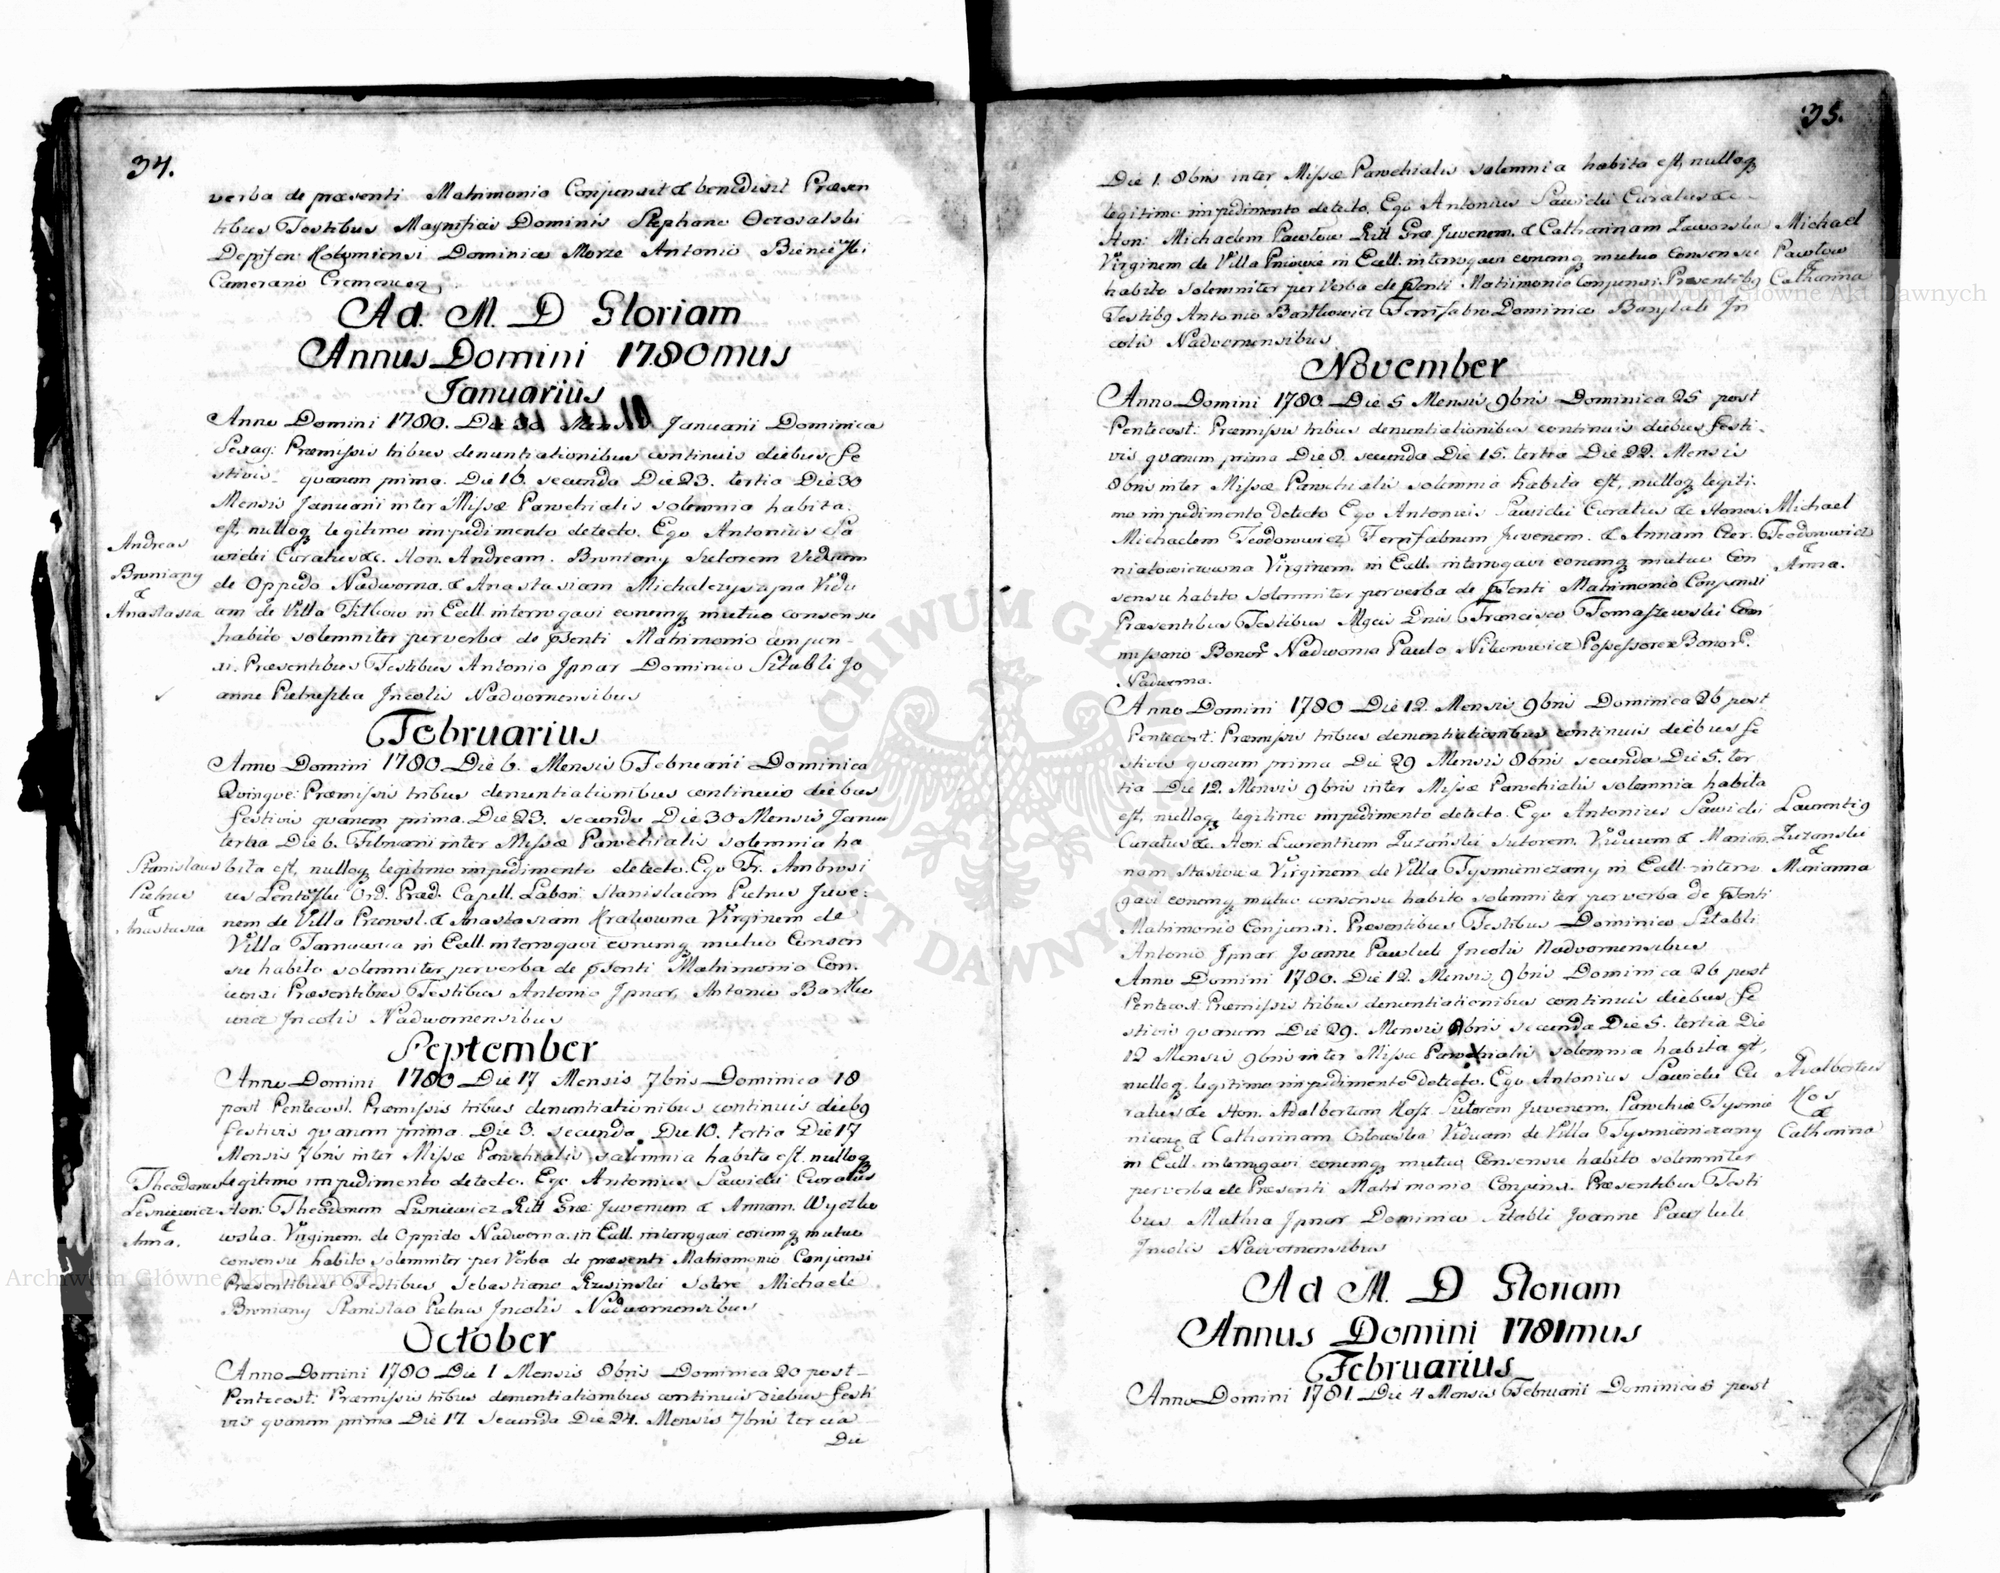 34.
verba de præsenti Matrimonio Conjunxit & benedixit Præsen
tibus Testibus Magnificis Dominis Stephano
Dominico Morze Antonio
Camerario
Ad. M. D Gloriam
Annus Domini 1780mus
Januarius
Anno Domini 1780. Die 30 Mensis Januarii Dominica
Sexag: Præmissis tribus denuntiationibus continuis diebus fe
stivis quarum prima. Die 16. secunda Die 23. tertia Die 30
Mensis Januarii inter Missæ Parochialis solemnia habita
est, nulloq legitimo impedimento detecto. Ego Antonius Sa
wicki Curatus &c. Hon. Andream Broniany Sutorem Viduum
de Oppido Nadworna. & Anastasiam Vidu
am de Villa Pitkow in Eccl. interrogavi eorumq mutuo consensu
habito solemniter per verba de psenti Matrimonio conjun-
xi. Præsentibus Testibus Antonio Ipnar Dominico Sztabli Jo
anne Incolis Nadwornensibus
Andreas
Broniany
&
Anastasia
Februarius
Anno Domini 1780 Die 6. Mensis Februarii Dominica
Quinque: Præmissis tribus denuntiationibus continuis diebus
festivis quarum prima. Die 23. secunda Die 30 Mensis Janua
tertia Die 6. Februarii inter Missæ Parochialis solemnia ha
bita est, nulloq legitimo impedimento detecto. Ego Fr. Ambrosi
us Ord. Præd. Capell. Labori Stanislaum Pietrus Juve:
nem de Villa & Anastasiam Virginem de
Villa in Eccl. interrogavi eorumq mutuo Consen
su habito solemniter per verba de psenti Matrimonio Con.
iunxi Præsentibus Testibus Antonio Ipnar, Antonio Bartko
wicz Incolis Nadwornensibus
Stanislaus
Pietrus
&
Anastasia
September
Anno Domini 1780 Die 17 Mensis 7bris Dominica 18
post Pentecost. Præmissis tribus denuntiationibus continuis diebq
festivis quarum prima. Die 3. secunda. Die 10. tertia Die 17
Mensis 7bris inter Missæ Parochialis solemnia habita est nulloq
legitimo impedimento detecto. Ego Antonius Sawicki Curatus
Hon: Theodorum Lesniewicz Ritt Græ: Juvenem & Annam. Wyczko
wska. Virginem. de Oppido Nadworna. in Eccl. interrogavi eorumq mutuo
consensu habito solemniter per Verba de præsenti Matriomonio Conjunxi
Præsentibus Testibus Sebastiano Michaele
Broniany Stanislao Pietrus Incolis Nadwornensibus
Theodorus
Lesniewicz
&
Anna.
October
Anno Domini 1780 Die 1 Mensis 8bris Dominica 20 post
Pentecost: Præmissis tribus denuntiationibus continuis diebus festi
vis quarum prima Die 17. secunda Die 24. Mensis 7bris tercia
Die
35.
Die 1. 8bris inter Missæ Parochialis solemnia habita est, nulloq
legitimo impedimento detecto. Ego Antonius Sawicki Curatus &c
Hon: Michaelem Pawlow Ritt Græ. Juvenem. & Catharinam Jaworska
Virginem de Villa Pniowie in Eccl. interrogavi eorumq mutuo Consensu
habito solemniter per Verba de psenti Matrimonio Conjunxi. Præsentibq
Testibq Antonio Bartkowicz Ferrifabro Dominico Barylak In
colis Nadwornensibus
Michael
Pawlow
Catharina
November
Anno Domini 1780. Die 5 Mensis 9bris Dominica 25 post
Pentecost: Præmissis tribus denuntiationibus continuis diebus festi-
vis quarum prima Die 8. secunda Die 15. tertia Die 22. Mensis
8bris inter Missæ Parochialis solemnia habita est, nulloq legiti:
mo impedimento detecto Ego Antonius Sawicki Curatus &c Honor.
Michaelem Teodorowicz Ferrifabrum Juvenem. & Annam Czer.
niatowiczowna Virginem. in Eccl. interrogavi eorumq mutuo Con
sensu habito solemniter per verba de psenti Matrimonio Conjunxi
Præsentibus Testibus Mgcis Dnis Francisco Tomaszewski Com
missario Bonor Nadworna Paulo Possessore Bonor.
Nadworna.
Michael
Teodorowicz
&
Anna.
Anno Domini 1780 Die 12. Mensis 9bris Dominica 26 post
Pentecost: Præmissis tribus denuntiationibus continuis diebus fe
stivis quarum prima Die 29 Mensis 8bris secunda Die 5. ter
tia Die 12. Mensis 9bris inter Missæ Parochialis solemnia habita
est, nulloq legitimo impedimento detecto. Ego Antonius Sawicki
Curatus &c. Hon: Laurentium Luzański Sutorem. Viduum & Marian,
nam Virginem de Villa Tysmieniczany in Eccl. interro
gavi eorumq mutuo consensu habito solemniter per verba de psenti
Matrimonio Conjunxi. Præsentibus Testibus Dominico Sztabli
Antonio Ipnar Joanne Incolis Nadwornensibus
Laurentiq
Luzanski
&
Marianna
Anno Domini 1780. Die 12. Mensis, 9bris Dominica 26 post
Pentecost. Præmissis tribus denuntiationibus continuis diebus fe
stivis quarum Die 29. Mensis 8bris secunda Die 5. tertia Die
12 Mensis 9bris inter Missæ Parochialis solemnia habita est,
nulloq legitimo impedimento detecto. Ego Antonius Sawicki Cu
ratus &c Hon. Adalbertum Sutorem Juvenem. Parochiæ Tysmie
& Catharinam Orlowska Viduam de Villa Tysmieniczany
in Eccl. interrogavi eorumq mutuo Consensu habito solemniter
per verba de Præsenti Matrimonio Conjunxi. Præsentibus Testi
bus Mathia Ipnar Dominico Sztabli Joanne
Incolis Nadwornensibus
Adalbertus
Kos
&
Catharina
Ad M. D Gloriam
Annus Domini 1781mus
Februarius
Anno Domini 1781. Die 4 Mensis Februarii Dominica 5 post
Archiwum Główne Akt Dawnych
Archiwum Główne Akt Dawnych
ARCHIWUM GŁÓWNE
AKT DAWNYCH